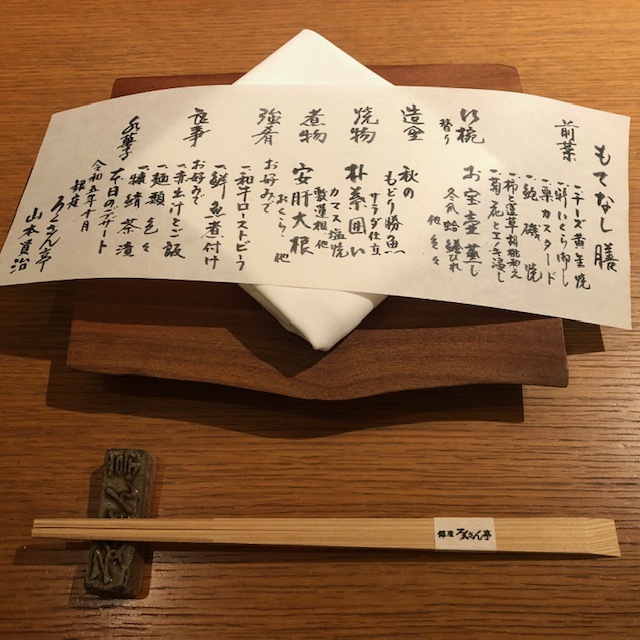 もてなし膳
前菜
一チーズ黄金焼
一鮮いくら御し
一栗カスタード
一鮑磯焼
一柿と蓮草胡桃和え
一菊花とエノキ浸し
吸椀
替り
お宝壷蒸し
冬瓜蛤鱶ひれ
他色々
造里
秋の
もどり勝魚
サラダ仕立
焼物
朴葉囲い
カマス塩焼
射蓮根他
煮物
安肝大根
おくら、他
強肴
お好みで
一和牛ローストビーフ
一鮮魚煮付け
食事
お好みで
一赤出汁とご飯
一麺類色々
一積鯖茶漬
水菓子
一本日のデザート
令和五年十月
銀座
ろくさん亭
山本員治
銀座ろくさん亭